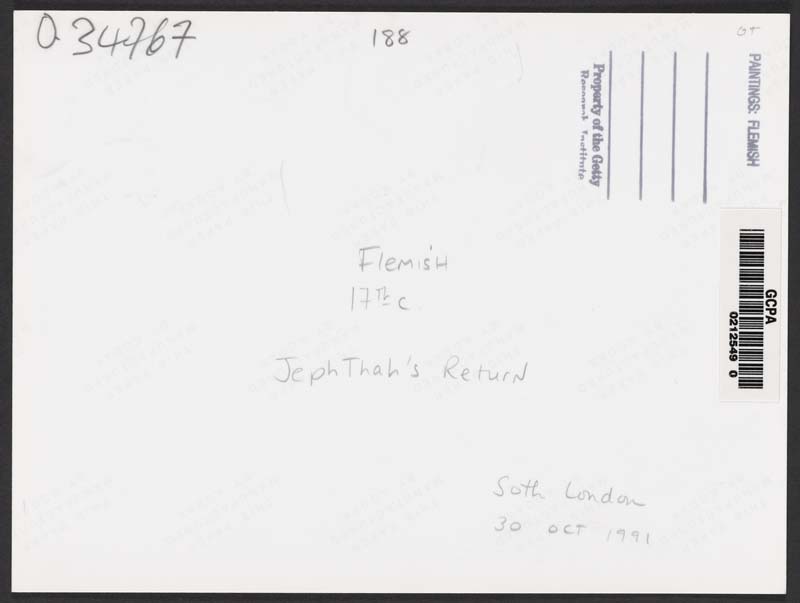 O 34767
188
OT
PAINTINGS: FLEMISH
Property of the Getty
Research Institute
GCPA
0212549 0
Flemish
17th c.
JephThah's Return
Soth London
30 OCT 1991